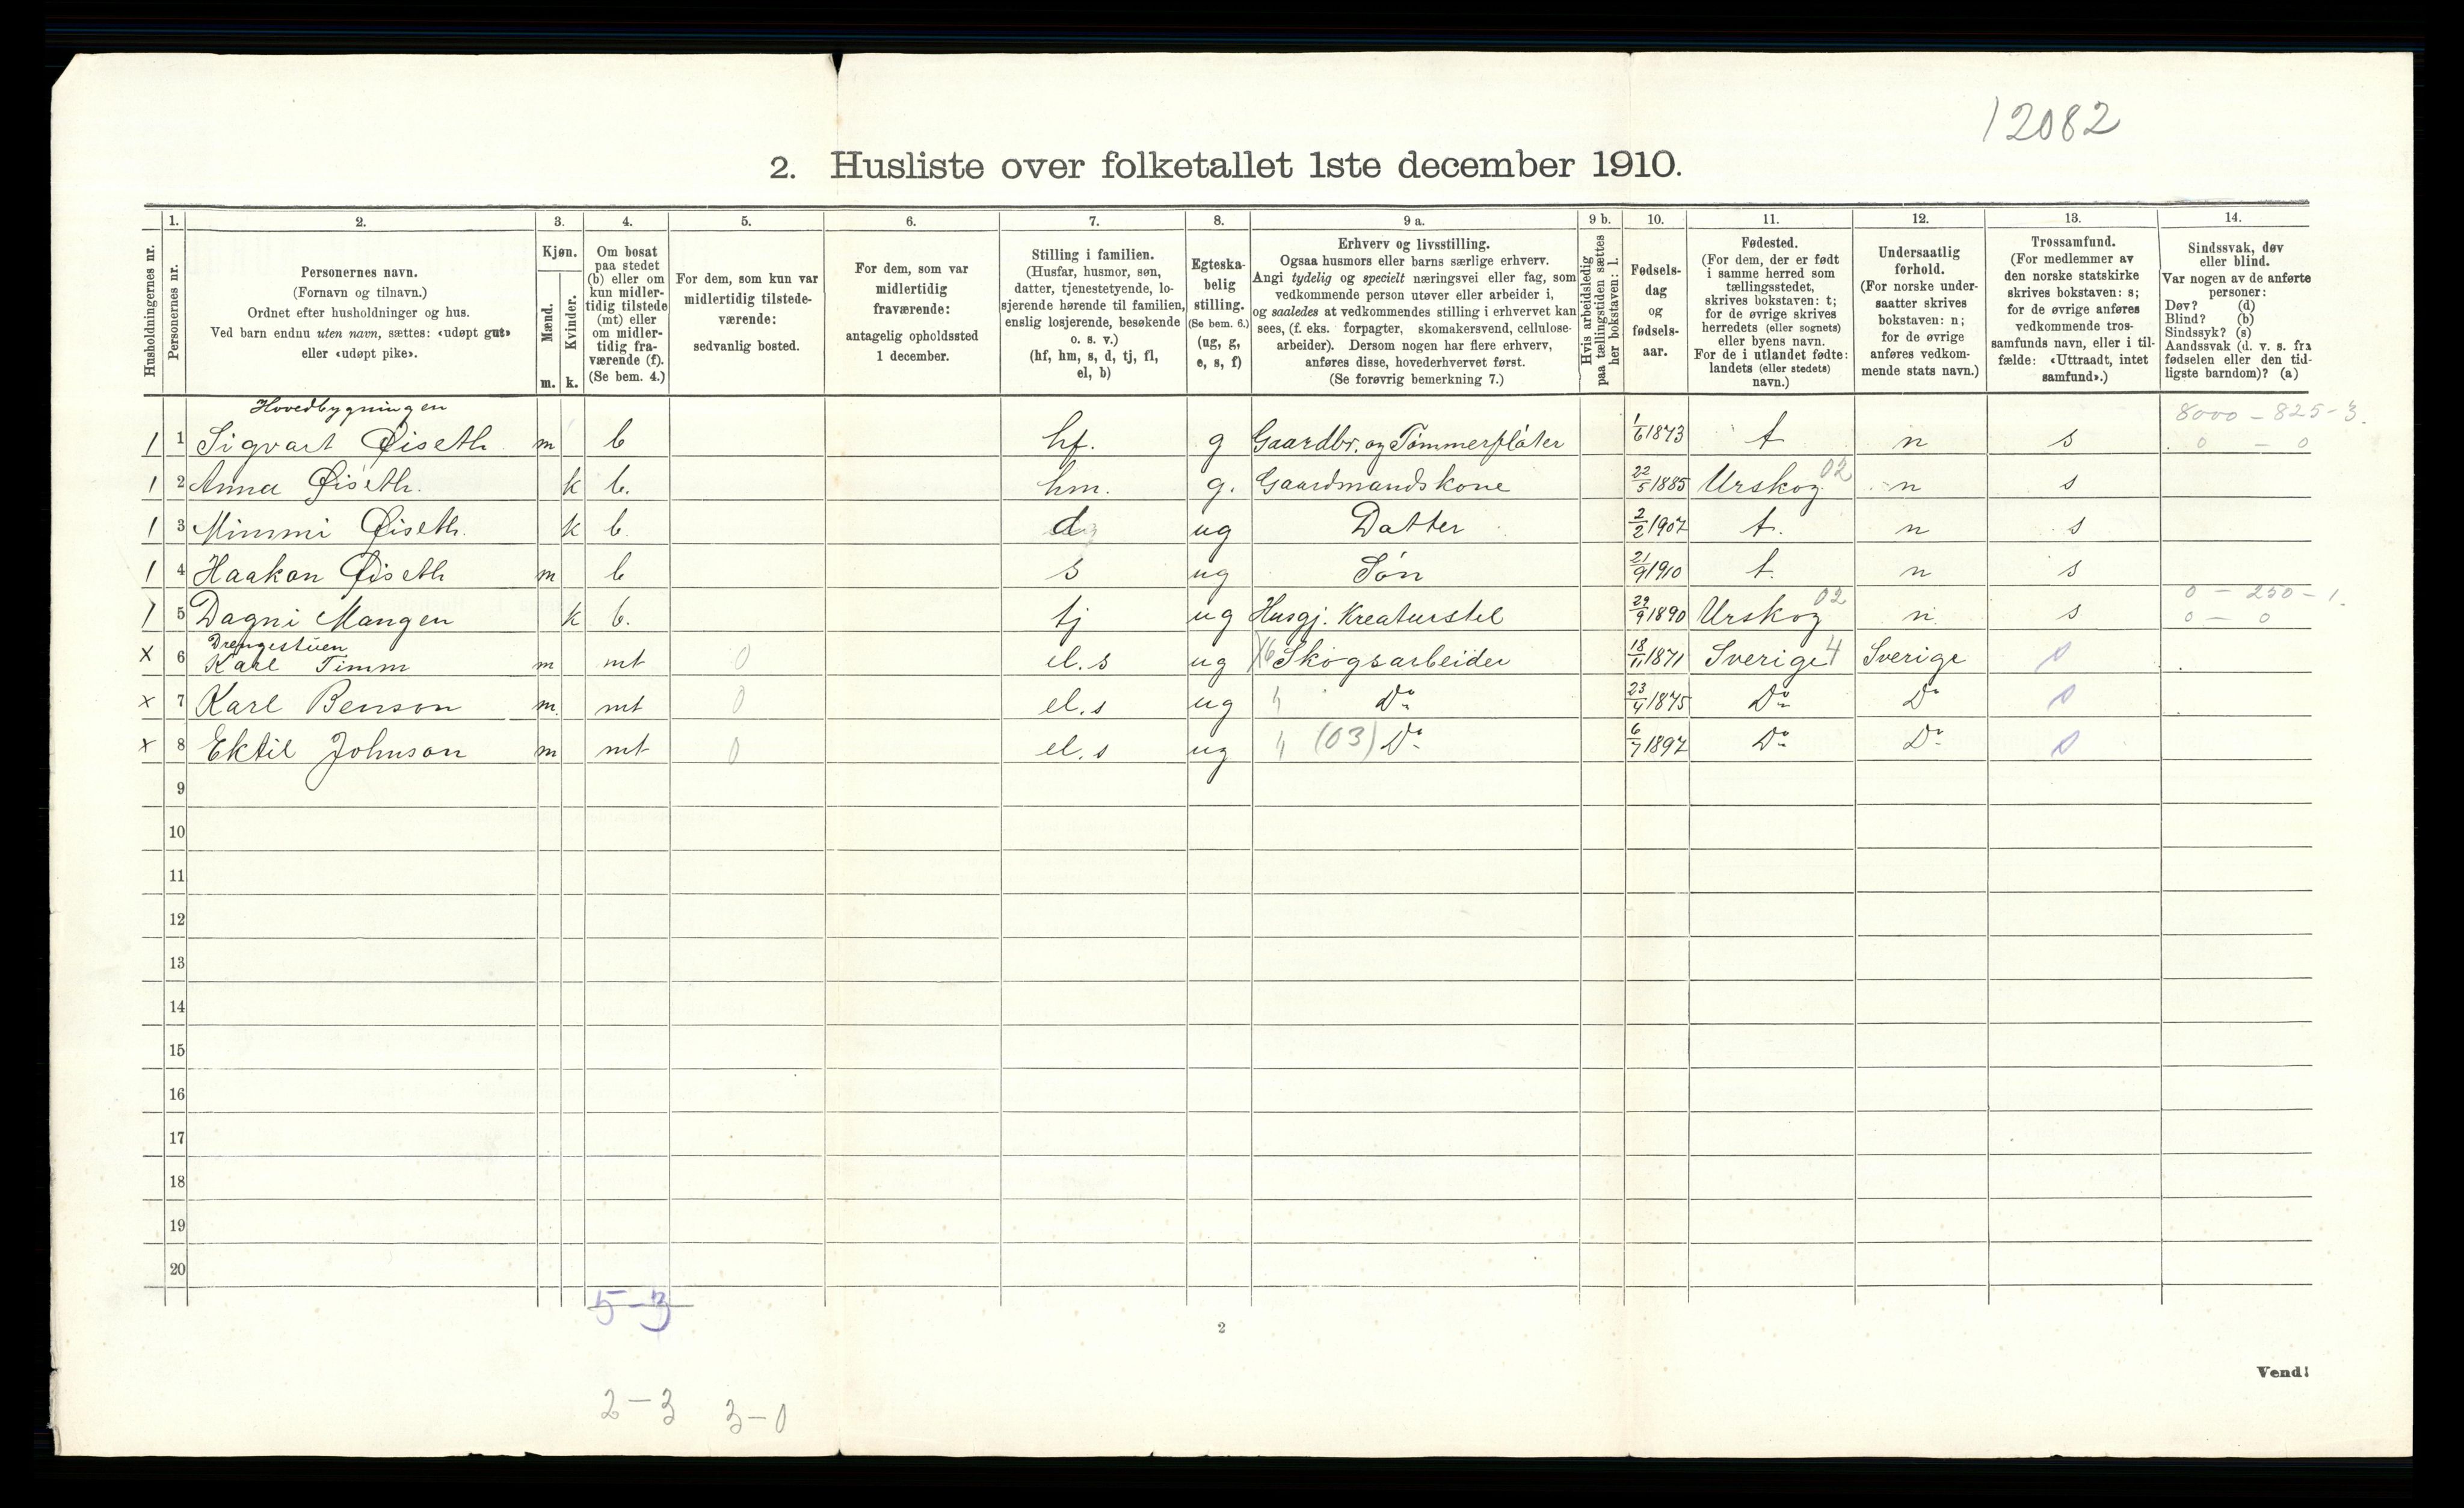 12082
2. Husliste over folketallet 1ste december 1910.
Husholdningernes nr.
1.
Personernes nr.
2.
Personernes navn.
(Fornavn og tilnavn.)
Ordnet efter husholdninger og hus.
Ved barn endnu uten navn, sættes: «udøpt gut»
eller «udøpt pike».
3.
Kjøn.
Mænd.
Kvinder.
m. k.
4.
Om bosat
paa stedet
(b) eller om
kun midler-
tidig tilstede
(mt) eller
om midler-
tidig fra-
værende (f).
(Se bem. 4.)
5.
For dem, som kun var
midlertidig tilstede-
værende:
sedvanlig bosted.
6.
For dem, som var
midlertidig
fraværende:
antagelig opholdssted
1 december.
7.
Stilling i familien.
(Husfar, husmor, søn,
datter, tjenestetyende, lo-
sjerende hørende til familien,
enslig losjerende, besøkende
o. s. v.)
(hf, hm, s, d, tj, fl,
el, b)
8.
Egteska-
belig
stilling.
(Se bem. 6.)
(ug, g,
e, s, f)
9 a.
Erhverv og livsstilling.
Ogsaa husmors eller barns særlige erhverv.
Angi tydelig og specielt næringsvei eller fag, som
vedkommende person utøver eller arbeider i,
og saaledes at vedkommendes stilling i erhvervet kan
sees, (f. eks. forpagter, skomakersvend, cellulose-
arbeider). Dersom nogen har flere erhverv,
anføres disse, hovederhvervet først.
(Se forøvrig bemerkning 7.)
9 b.
Hvis arbeidsledig
paa tællingstiden sættes
her bokstaven: l.
10.
Fødsels-
dag
og
fødsels-
aar.
11.
Fødested.
(For dem, der er født
i samme herred som
tællingsstedet,
skrives bokstaven: t;
for de øvrige skrives
herredets (eller sognets)
eller byens navn.
For de i utlandet fødte:
landets (eller stedets)
navn.)
12.
Undersaatlig
forhold.
(For norske under-
saatter skrives
bokstaven: n;
for de øvrige
anføres vedkom-
mende stats navn.)
13.
Trossamfund.
(For medlemmer av
den norske statskirke
skrives bokstaven: s;
for de øvrige anføres
vedkommende tros-
samfunds navn, eller i til-
fælde: «Uttraadt, intet
samfund».)
14.
Sindssvak, døv
eller blind.
Var nogen av de anførte
personer:
Døv? (d)
Blind? (b)
Sindssyk? (s)
Aandssvak (d. v. s. fra
fødselen eller den tid-
ligste barndom)? (a)
Hovedbygningen
8000 – 825 – 3.
1 1 Sigvart Øiseth m b hf. g Gaardbr. og Tømmerfløter 1/6 1873 t n s 0 – 0
1 2 Anna Øiseth. k b. hm. g. Gaardmandskone 22/5 1885 Urskog 02 n s
1 3 Mimmi Øiseth. k b. d ug Datter 2/2 1907 t. n s
1 4 Haakon Øiseth m b s ug Søn 21/9 1910 t. n s
0 – 250 – 1.
1 5 Dagni Mangen k b. tj ug Husgj. Kreaturstel 29/9 1890 Urskog 02 n. s 0 – 0
Drengestuen
x 6 Karl Timm m mt 0 el. s ug Skogsarbeider 18/11 1871 Sverige 4 Sverige
x 7 Karl Benson m. mt 0 el. s ug Do 23/4 1875 Do Do
x 8 Ektil Johnson m mt 0 el. s ug (03) Do 6/7 1897 Do Do
9
10
11
12
13
14
15
16
17
18
19
20
5–3
2
Vend!
2–3 3–0